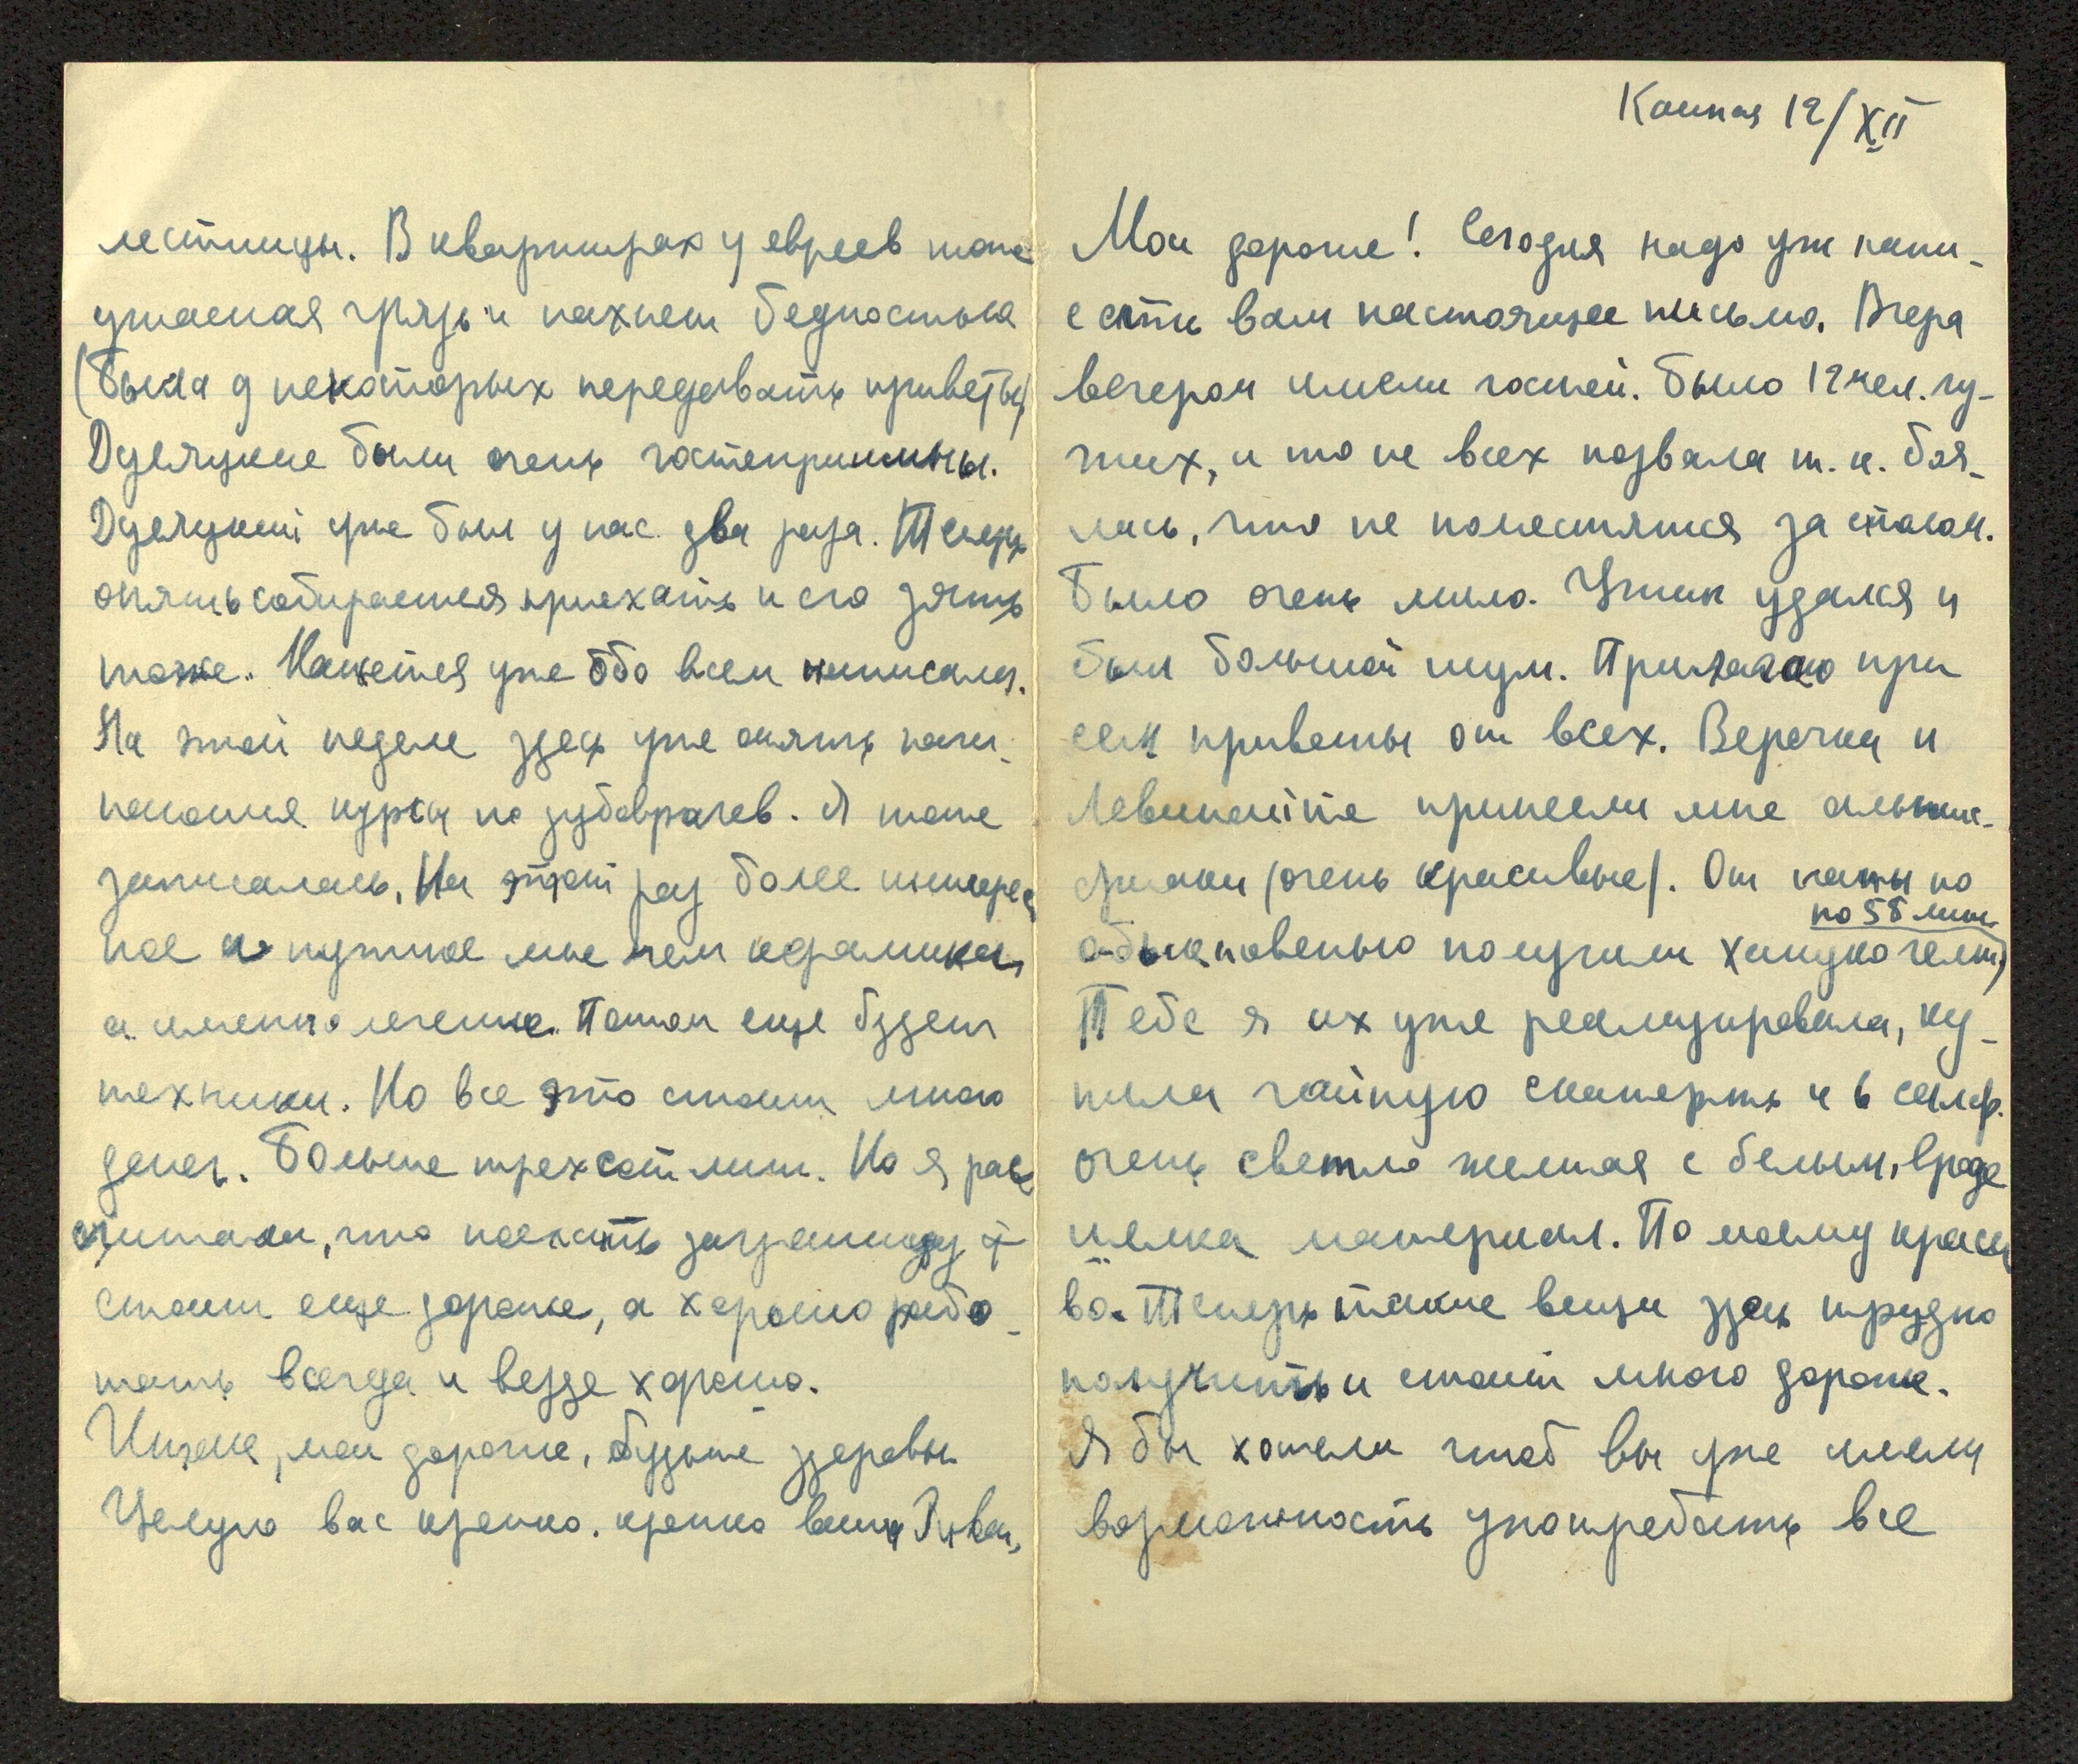 Каунас 12/XII
Мои дорогие! Сегодня надо уж напи-
сать вам настоящее письмо. Вчера
вечером имели гостей. Было 12 чел. чу-
жих, и то не всех позвала т.к. боя-
лась, что не поместятся за столом.
Было очень мило. Ужин удался и
был большой шум. Прилагаю при
сем приветы от всех. Верочка и
принесли мне
(очень красивые). От папы по
по 50 лит
обыкновенью получили ханука гельт)
Тебе я их уже реализировала, ку-
пила чайную скатерть и 6 салф.
очень светло желтая с белым, вроде
шелка материал. По моему краси
во. Теперь такие вещи здесь трудно
получить и стоит много дороже.
Я бы хотела чтоб вы уже имели
возможность употребить все
лестницы. В квартирах у евреев тоже
ужасная грязь и пахнет бедностью
(Была у некоторых передавать приветы)
были очень гостеприимны.
уже был у нас два раза. Теперь
опять собирается приехать и его зять
тоже. Кажется уже обо всем написала.
На этой неделе здесь уже опять начи-
наются курсы по зубоврачев. Я тоже
записалась. На этот раз более интерес
ное и нужное мне чем керамика,
а именно лечение. Потом еще будет
техники. Но все это стоит много
денег. Больше трехсот лит. Но я рас
считала, что поехать заграницу
стоит еще дороже, а хорошо рабо-
тать всегда и везде хорошо.
Ну, мои дорогие, будьте здоровы
Целую вас крепко, крепко ваша Рива.